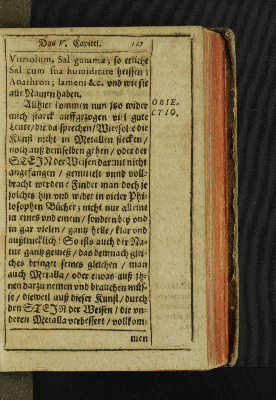 Das V. Capitel. 127
Vitriolum, Sal gemmæ; so etliche
Sal cum sua humiditate heissen;
Anathron; lamen: &c. und wie sie
alle Namen haben.
Allhier kommen nun itzo wider
mich starck auffgezogen viel gute
Leute / die da sprechen / Wie solte die
Kunst nicht in Metallen stecken /
noch auß demselben gehen / oder der
STEIN der Weisen darmit nicht
angefangen / gemittelt unnd voll-
bracht werden? Findet man doch ja
solches hin und wider in vieler Phi-
losophen Bücher; nicht nur alleine
in eines und einem / sondern bey und
in gar vielen / gantz helle / klar und
außtrucklich! So ists auch der Na-
tur gantz gemeß / das demnach glei-
ches bringet seines gleichen / man
auch Metalla / oder etwas auß ih-
nen darzu nemen und brauchen müs-
se / dieweil auß dieser Kunst / durch
den STEIN der Weisen / die un-
deren Metalla verbessert / vollkom-
men
OBIE-
CTIO,